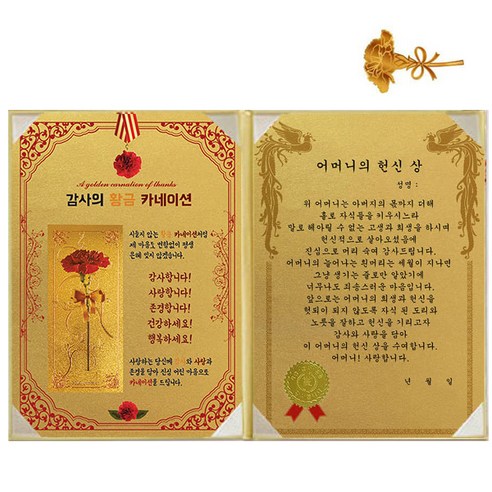 A golden carnation of thanks
감사의 황금 카네이션
시들지 않는 황금 카네이션처럼
제 마음도 변함없이 평생
은혜 잊지 않겠습니다.
감사합니다!
사랑합니다!
존경합니다!
건강하세요!
행복하세요!
사랑하는 당신에 사랑과
존경을 담아 진심 어린 마음으로
카네이션을 드립니다.
어머니의 헌신 상
성명 :
위 어머니는 아버지의 몫까지 더해
홀로 자식들을 키우시느라
말로 헤아릴 수 없는 고생과 희생을 하시며
헌신적으로 살아오셨음에
진심으로 머리 숙여 감사드립니다.
어머니의 늘어나는 흰머리는 세월이 지나면
그냥 생기는 줄로만 알았기에
너무나도 죄송스러운 마음입니다.
앞으로는 어머니의 희생과 헌신을
헛되이 되지 않도록 자식 된 도리와
노릇을 잘하고 헌신을 기리고자
감사와 사랑을 담아
이 어머니의 헌신 상을 수여합니다.
어머니! 사랑합니다.
년 월 일